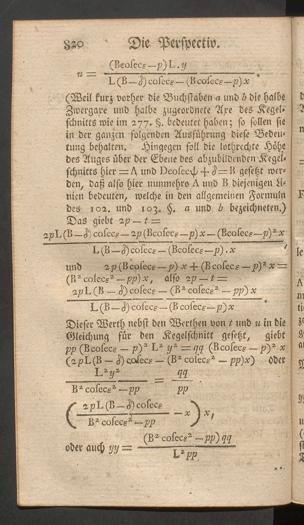 320 Die Perspectiv.
u = (Bcosecε−p)L.y / L(B−δ)cosecε−(Bcosecε−p)x .
(Weil kurz vorher die Buchstaben a und b die halbe
Zwergaxe und halbe zugeordnete Axe des Kegel-
schnitts wie im 277. §. bedeutet haben; so sollen sie
in der ganzen folgenden Ausführung diese Bedeu-
tung behalten. Hingegen soll die lothrechte Höhe
des Auges über der Ebene des abzubildenden Kegel-
schnitts hier = Λ und Dcosecψ + δ = B gesetzt wer-
den, daß also hier nunmehro Λ und B diejenigen Li-
nien bedeuten, welche in den allgemeinen Formuln
des 102. und 103. §. a und b bezeichneten.)
Das giebt 2p − t =
2pL(B−δ)cosecε−2p(Bcosecε−p)x−(Bcosecε−p)²x / L(B−δ)cosecε−(Bcosecε−p).x ,
und 2p(Bcosecε−p)x+(Bcosecε−p)²x =
(B²cosecε²−pp)x, also 2p − t =
2pL(B−δ)cosecε−(B²cosecε²−pp)x / L(B−δ)cosecε−(Bcosecε−p)x .
Dieser Werth nebst den Werthen von t und u in die
Gleichung für den Kegelschnitt gesetzt, giebt
pp(Bcosecε−p)²L²y² = qq(Bcosecε−p)²x
(2pL(B−δ)cosecε−(B²cosecε²−pp)x) oder
L²y² / B²cosecε²−pp = qq / pp
(2pL(B−δ)cosecε / B²cosecε²−pp − x) x,
oder auch yy = (B²cosecε²−pp)qq / L²pp